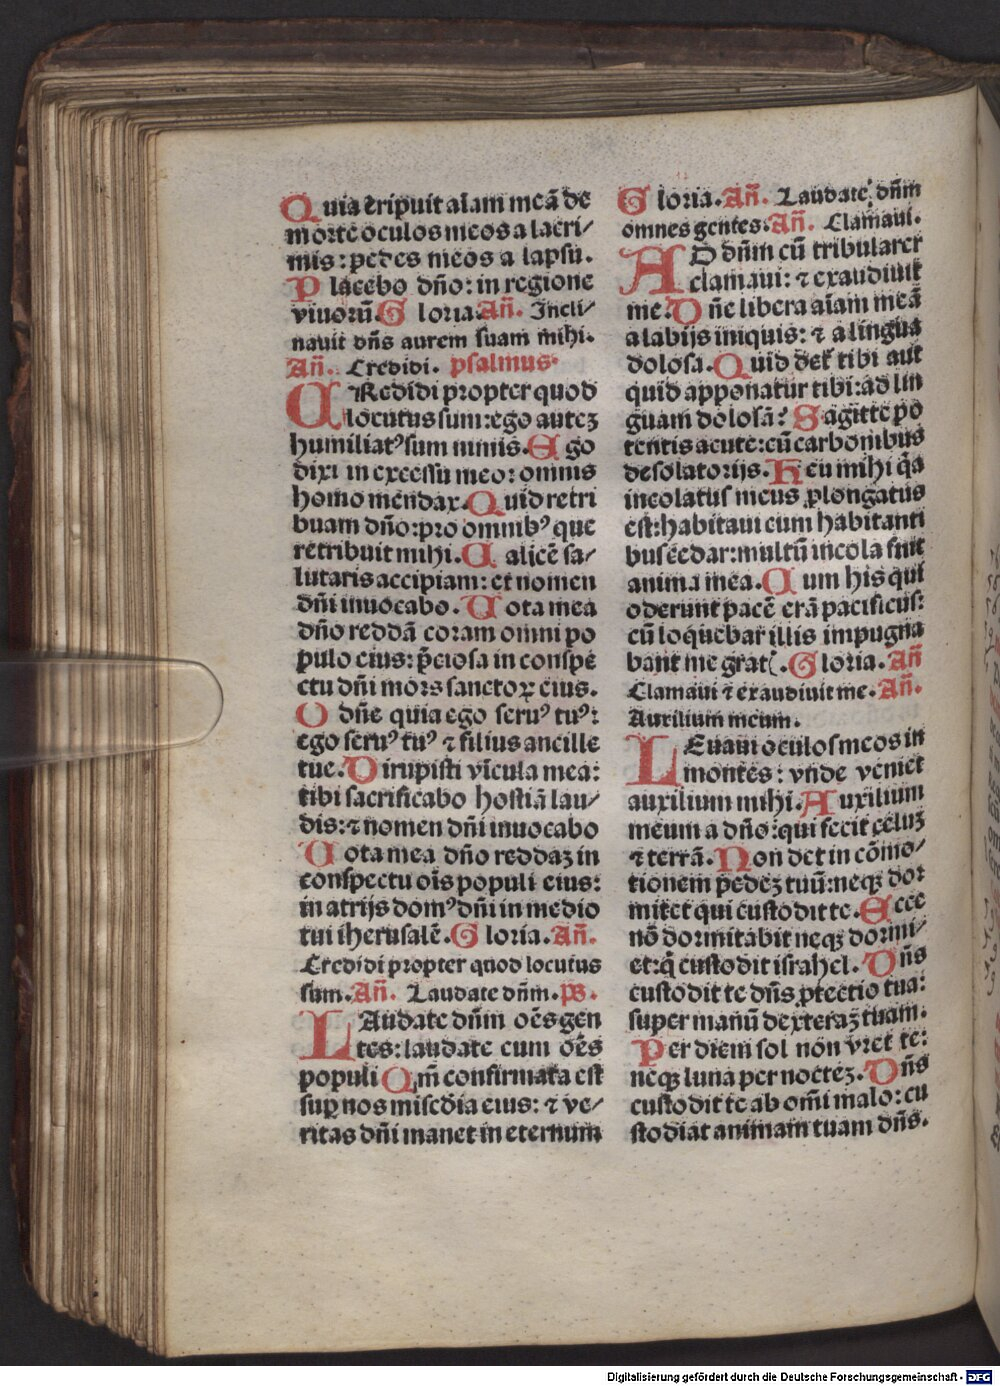 Quia eripuit aīam meā de
morte oculos meos a lacri/
mis: pedes meos a lapsu.
Placebo dño: in regione
viuorū. Gloria. Añ. Incli/
nauit dñs aurem suam mihi.
Añ. Credidi. psalmus.
CRedidi propter quod
locutus sum: ego auteꝫ
humiliatꝰ sum nimis. Ego
dixi in excessu meo: omnis
homo mendax. Quid retri
buam dño: pro omnibꝰ que
retribuit mihi. Calicē sa/
lutaris accipiam: et nomen
dñi inuocabo. Uota mea
dño reddā coram omni po
pulo eius: p̄ciosa in conspe
ctu dñi mors sanctoꝝ eius.
O dñe quia ego seruꝰ tuꝰ:
ego seruꝰ tuꝰ ⁊ filius ancille
tue. Dirupisti vīcula mea:
tibi sacrificabo hostiā lau/
dis: ⁊ nomen dñi inuocabo
Uota mea dño reddaꝫ in
conspectu oīs populi eius:
in atrijs domꝰ dñi in medio
tui iherusalē. Gloria. Añ.
Credidi propter quod locutus
sum. Añ. Laudate dñm. ps.
LAudate dñm oēs gen
tes: laudate eum oēs
populi Qm̄ confirmata est
suꝑ nos misc̄dia eius: ⁊ ve/
ritas dñi manet in eternum
Gloria. Añ. Laudate dñm
omnes gentes. Añ. Clamaui.
AD dñm cū tribularer
clamaui: ⁊ exaudiuit
me. Dñe libera aīam meā
a labijs iniquis: ⁊ a lingua
dolosa. Quid det̄ tibi aut
quid apponatur tibi: ad lin
guam dolosā? Sagitte po
tentis acute: cū carbonibus
desolatorijs. Heu mihi q̄a
incolatus meus ꝓlongatus
est: habitaui cum habitanti
bus cedar: multū incola fuit
anima mea. Cum his qui
oderunt pacē erā pacificus:
cū loquebar illis impugna
bant me grat{. Gloria. Añ
Clamaui ⁊ exaudiuit me. Añ.
Auxilium meum.
LEuaui oculos meos in
montes: vnde veniet
auxilium mihi. Auxilium
meum a dño: qui fecit celuꝫ
⁊ terrā. Non det in cōmo/
tionem pedeꝫ tuū: neqꝫ dor
mitet qui custodit te. Ecce
nō dormitabit neqꝫ dormi/
et: q̄ custodit israhel. Dñs
custodit te dñs ꝓtectio tua:
super manū dexteraꝫ tuam.
Per diem sol non vret te:
neqꝫ luna per nocteꝫ. Dñs
custodit te ab om̄i malo: cu
stodiat animam tuam dñs.
Digitalisierung gefördert durch die Deutsche Forschungsgemeinschaft - DFG